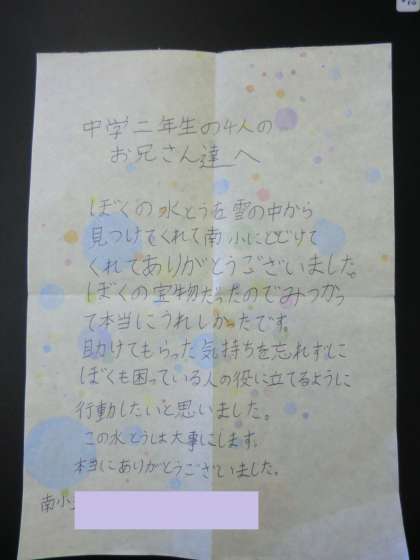 中学二年生の4人の
お兄さん達へ
ぼくの水とうを雪の中から
見つけてくれて南小にとどけて
くれてありがとうございました。
ぼくの宝物だったのでみつかっ
て本当にうれしかったです。
助けてもらった気持ちを忘れずに
ぼくも困っている人の役に立てるように
行動したいと思いました。
この水とうは大事にします。
本当にありがとうございました。
南小